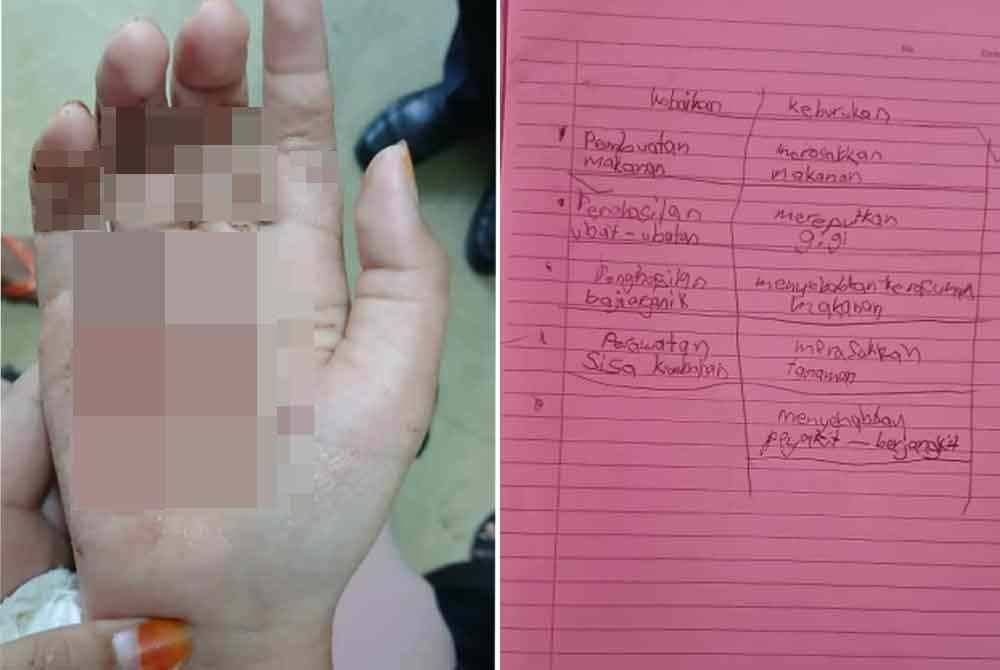 kebaikan keburukan
Pembuatan
makanan
merosakkan
makanan
Penghasilan
ubat-ubatan
mereputkan
gigi
Penghasilan
baja organik
menyebabkan
Perawatan
Sisa kumbahan
merosakkan
tanaman
menyebabkan
berjangkit